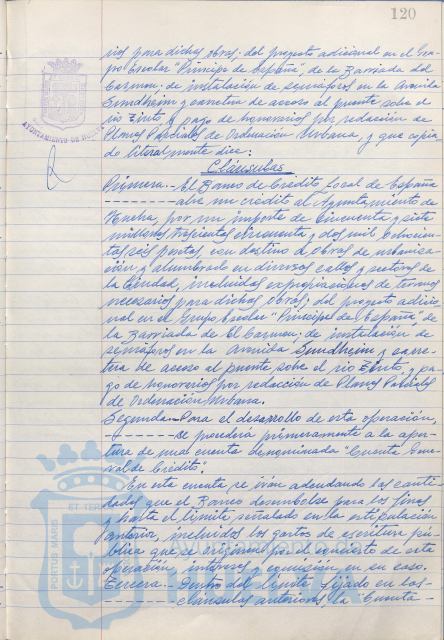 120
rios para dichas obras; del proyecto adicional en el Gru-
po Escolar "Principe de España", de la Barriada del
Carmen; de instalación de semáforos en la Avenida
Sundheim y carretera de acceso al puente sobre el
rio Tinto, y pago de honorarios por redacción de
Planos Parciales de Ordenación Urbana, y que copia-
do literalmente dice:
Cláusulas
Primera.- El Banco de Crédito Local de España
abre un crédito al Ayuntamiento de
Huelva, por un importe de Cincuenta y siete
millones, trescientas cincuenta y dos mil ochocien-
tas seis pesetas, con destino a obras de urbaniza-
ción y alumbrado en diversas calles y sectores de
la Ciudad, incluidas expropiaciones de terrenos
necesarios para dichas obras; del proyecto adicio-
nal en el Grupo Escolar "Principe de España" de
la Barriada de El Carmen; de instalación de
semáforos en la Avenida Sundheim y carre-
tera de acceso al puente sobre el rio Tinto, y pa-
go de honorarios por redacción de Planos Parciales
de Ordenación Urbana.
Segunda.- Para el desarrollo de esta operación,
se procederá primeramente a la aper-
tura de una cuenta denominada "Cuenta Gene-
ral de Crédito".
En esta cuenta se irán adeudando las canti-
dades que el Banco desembolse para los fines
y hasta el límite señalado en la estipulación
anterior, incluidos los gastos de escritura pú-
blica que se originen por el concierto de esta
operación, intereses y comisión, en su caso.
Tercera.- Dentro del límite fijado en las
cláusulas anteriores la "Cuenta
AYUNTAMIENTO DE HUELVA
PORTUS MARIS ET TERRAE